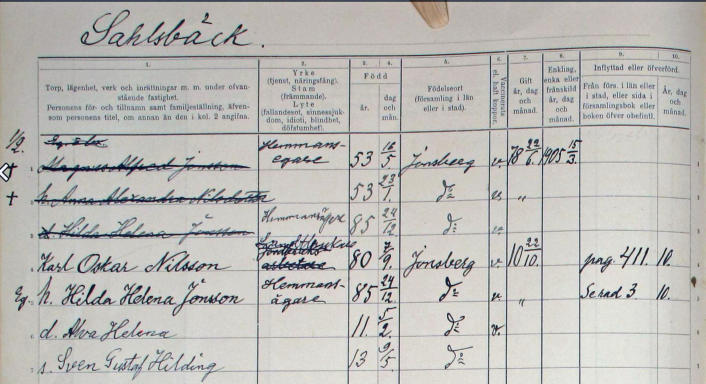 Sahlsbäck. 2
1.
2.
3.
4.
5.
6.
7.
8.
9.
10.
Torp, lägenhet, verk och inrättningar m. m. under ofvan-
stående fastighet.
Personens för- och tillnamn samt familjeställning, äfven-
som personens titel, om annan än den i kol. 2 angifna.
Yrke
(tjenst, näringsfång).
Stam
(främmande).
Lyte
(fallandesot, sinnessjuk-
dom, idioti, blindhet,
döfstumhet).
Född
år.
dag
och
mån.
Födelseort
(församling i län
eller i stad).
Vaccinerats
el. haft koppor.
Gift
år, dag
och
månad.
Enkling,
enka eller
frånskild
år, dag
och
månad.
Inflyttad eller öfverförd.
Från förs. i län eller
i stad, eller sida i
församlingsbok eller
boken öfver obefintl.
År, dag
och
månad.
1/2
Hemmans-
† Magnus Alfred Jönsson egare 53 16/5 Jonsberg v. 78 22/6. 1905 15/3.
† h. Anna Alexandra Nilsdotter 53 23/1. d:o v. „
Hemmansägare
d. Hilda Helena Jönsson 85 24/12 d:o v.
Karl Oskar Nilsson arbetare 80 7/9. Jonsberg v. 10 22/10. pag. 411. 10.
Eg. h. Hilda Helena Jönsson Hemmans-
ägare 85 24/12. d:o v. „ Se rad 3. 10.
d. Alva Helena 11. 5/2. d:o v.
s. Sven Gustaf Hilding 13 9/5 d:o